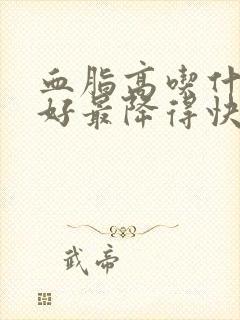 血脂高喫什
好最降得快
武帝